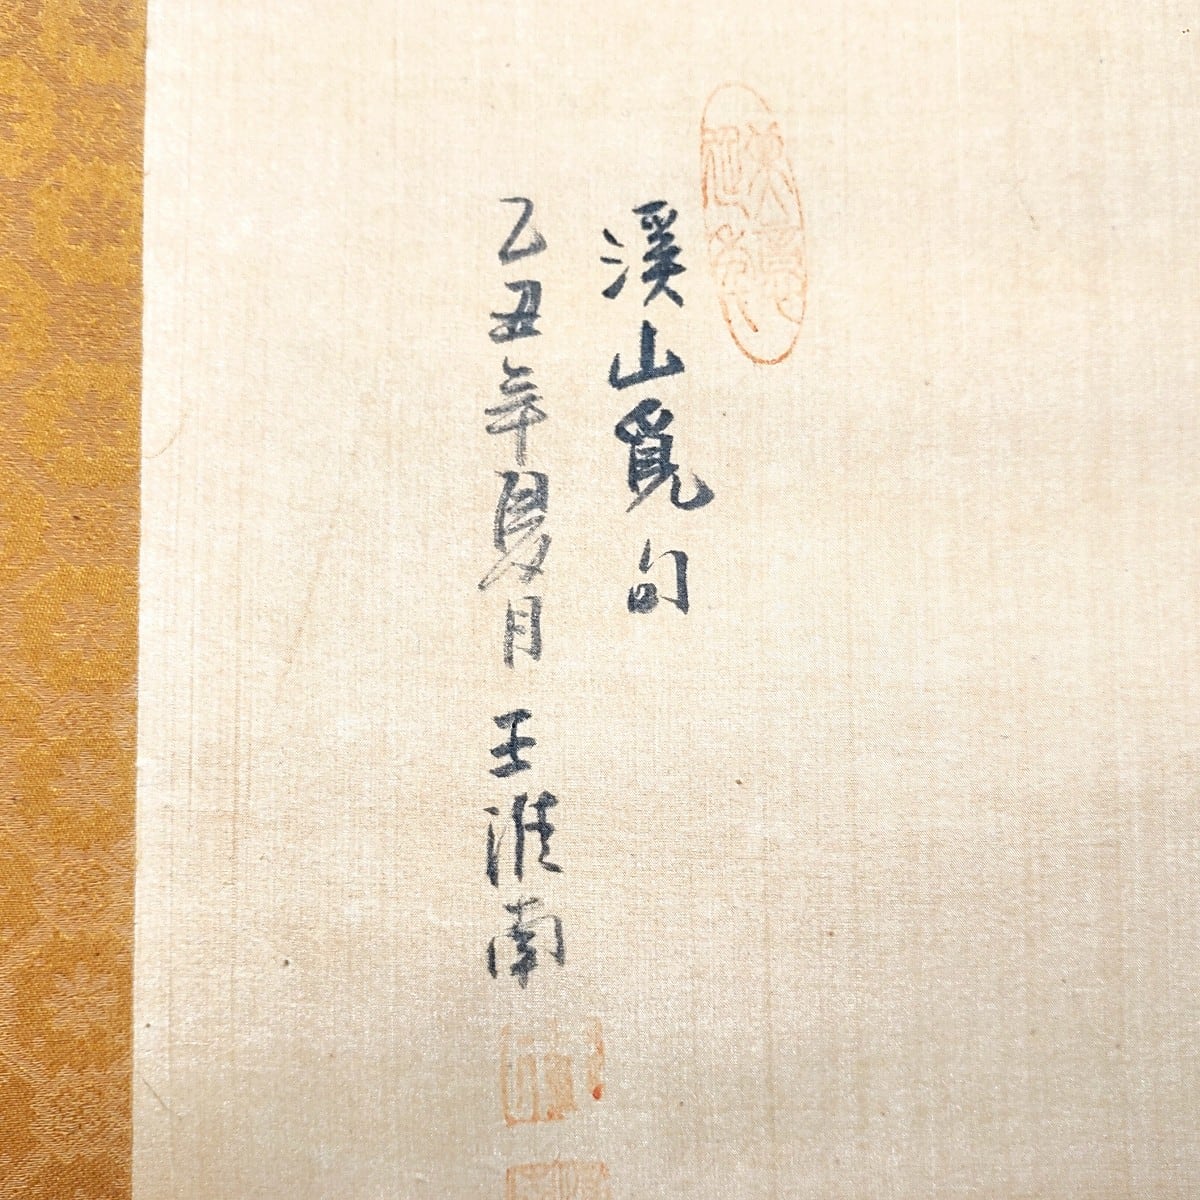 溪山覓句
乙丑年夏月 王淮南